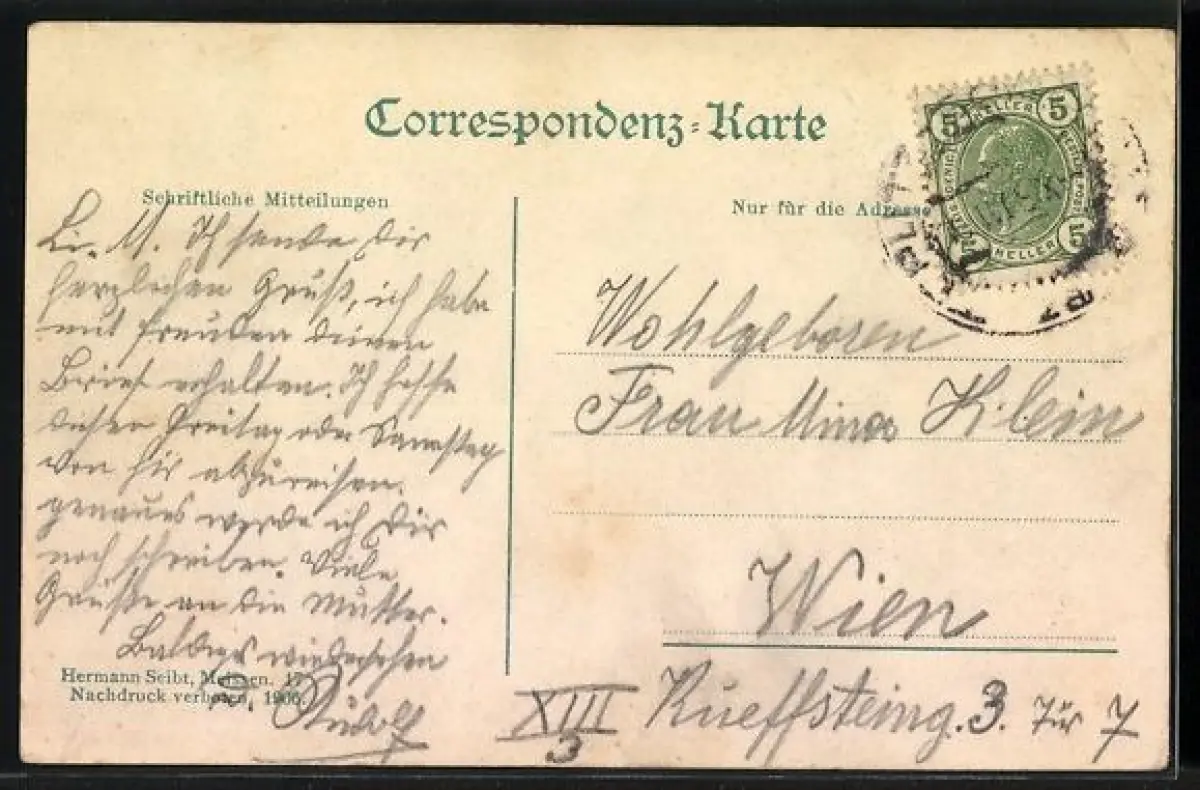 Correspondenz-Karte
Schriftliche Mitteilungen
Nur für die Adresse
5 HELLER 5
5 HELLER 5
Li. M. Ich sende dir
herzlichen Gruß, ich habe
mit freuden deinen
Brief erhalten. Ich hoffe
diesen Freitag oder Samstag
von hir abzureisen.
genaues werde ich Dir
noch schreiben. Viele
Grüße an die Mutter.
Baldiges wiedersehen
Rudolf
Hermann Seibt, Meissen. 17
Nachdruck verboten, 1906.
Wohlgeboren
Frau Mina Klein
Wien
XIII Kueffsteing. 3. Tür 7
3